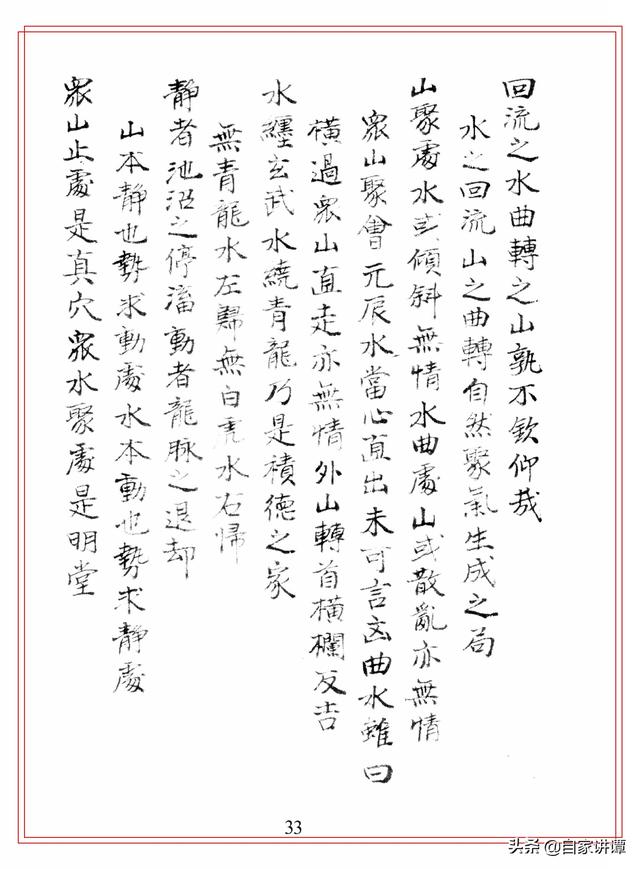 回流之水曲轉之山孰不欽仰哉
水之回流山之曲轉自然聚氣生成之局
山聚處水或傾斜無情水曲處山或散亂亦無情
眾山聚會元辰水當心直出未可言凶曲水雖曰
橫過眾山直走亦無情外山轉首橫欄反吉
水纏玄武水繞青龍乃是積德之家
無青龍水左歸無白虎水右歸
靜者池沼之停濤動者龍脉之退却
山本靜也勢求動處水本動也勢求靜處
眾山止處是真穴眾水聚處是明堂
33
头条 @自家讲谭